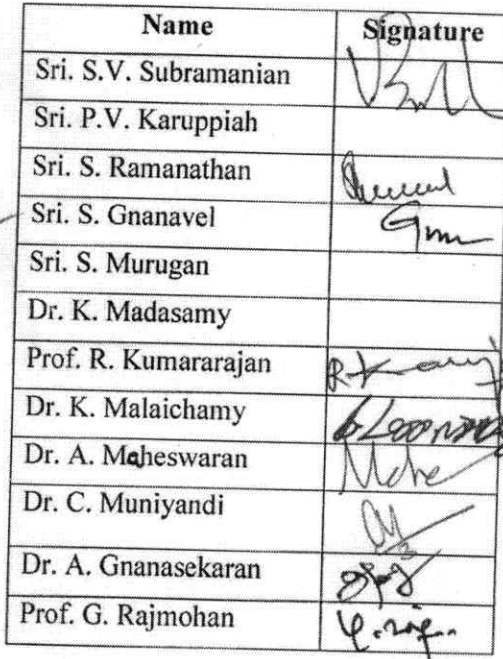 Name Signature
Sri. S.V. Subramanian
Sri. P.V. Karuppiah
Sri. S. Ramanathan
Sri. S. Gnanavel
Sri. S. Murugan
Dr. K. Madasamy
Prof. R. Kumararajan
Dr. K. Malaichamy
Dr. A. Maheswaran
Dr. C. Muniyandi
Dr. A. Gnanasekaran
Prof. G. Rajmohan